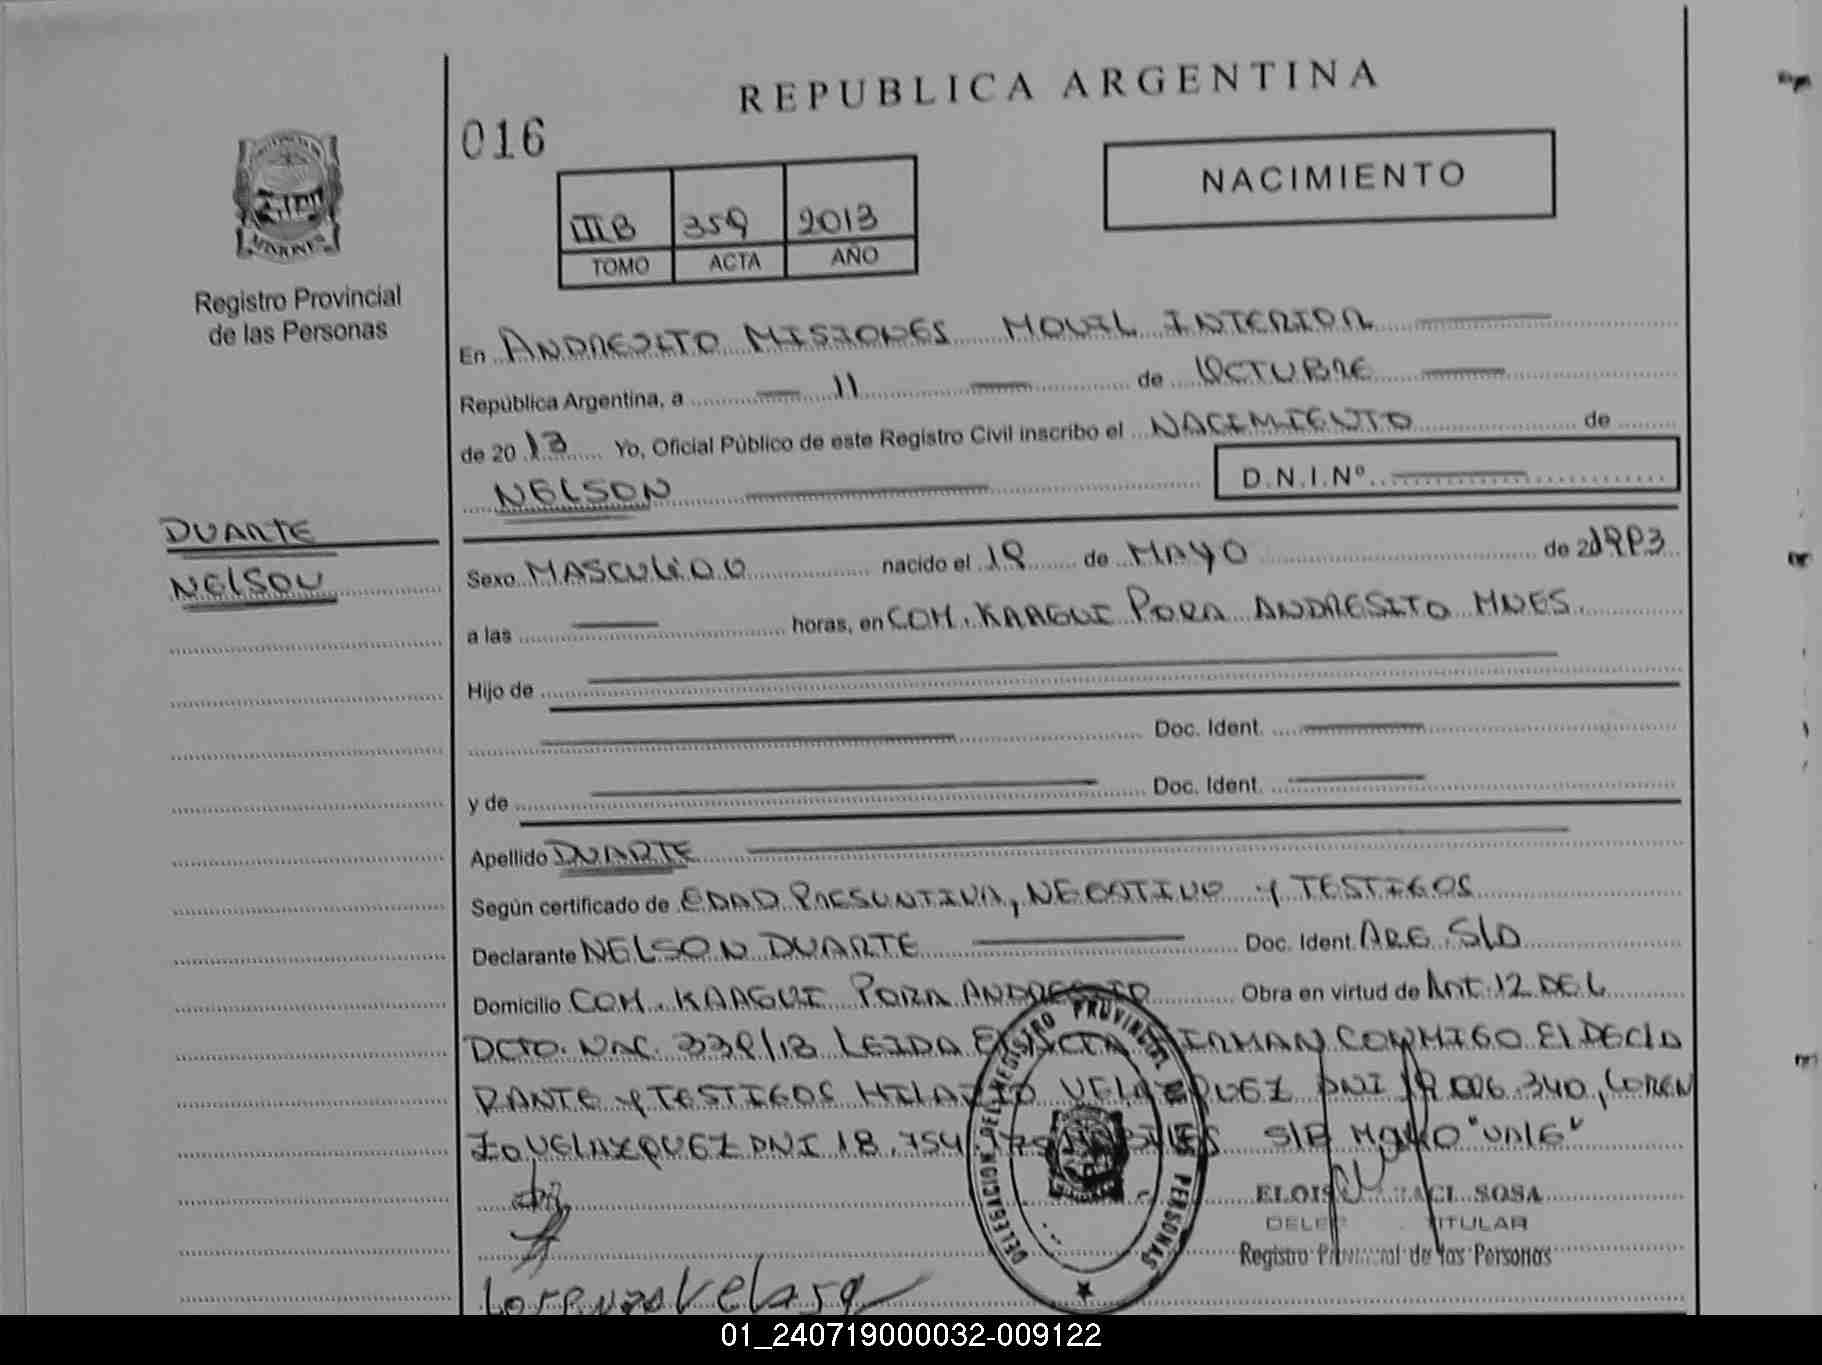 REPUBLICA ARGENTINA
016
NACIMIENTO
IIIB 359 2013
TOMO ACTA AÑO
MISIONES
Registro Provincial
de las Personas
En ANDRESITO MISIONES MOVIL INTERIOR
República Argentina, a 11 de OCTUBRE
de 2013 Yo, Oficial Público de este Registro Civil inscribo el NACIMIENTO de
NELSON D.N.I.Nº
DUARTE
NELSON
Sexo MASCULINO nacido el 18 de MAYO de 1993
a las horas, en COM. KAAGUI PORA ANDRESITO MNES.
Hijo de
Doc. Ident.
y de Doc. Ident.
Apellido DUARTE
Según certificado de EDAD PRESUNTIVA, NEGATIVO Y TESTIGOS
Declarante NELSON DUARTE Doc. Ident. ARG. S/D
Domicilio COM. KAAGUI PORA ANDRESITO Obra en virtud de ART. 12 DEL
DCTO. NAC. 339/13 LEIDA EL ACTA FIRMAN CONMIGO EL DECLA
RANTE Y TESTIGOS HILARIO VELAZQUEZ DNI 006.340, LOREN
ZO VELAZQUEZ DNI 18.754. S/R MAYO "VALE"
DELEGACION DEL REGISTRO PROVINCIAL DE LAS PERSONAS
SOSA
TITULAR
Registro Provincial de las Personas
Lorenzo Velasq
01_240719000032-009122